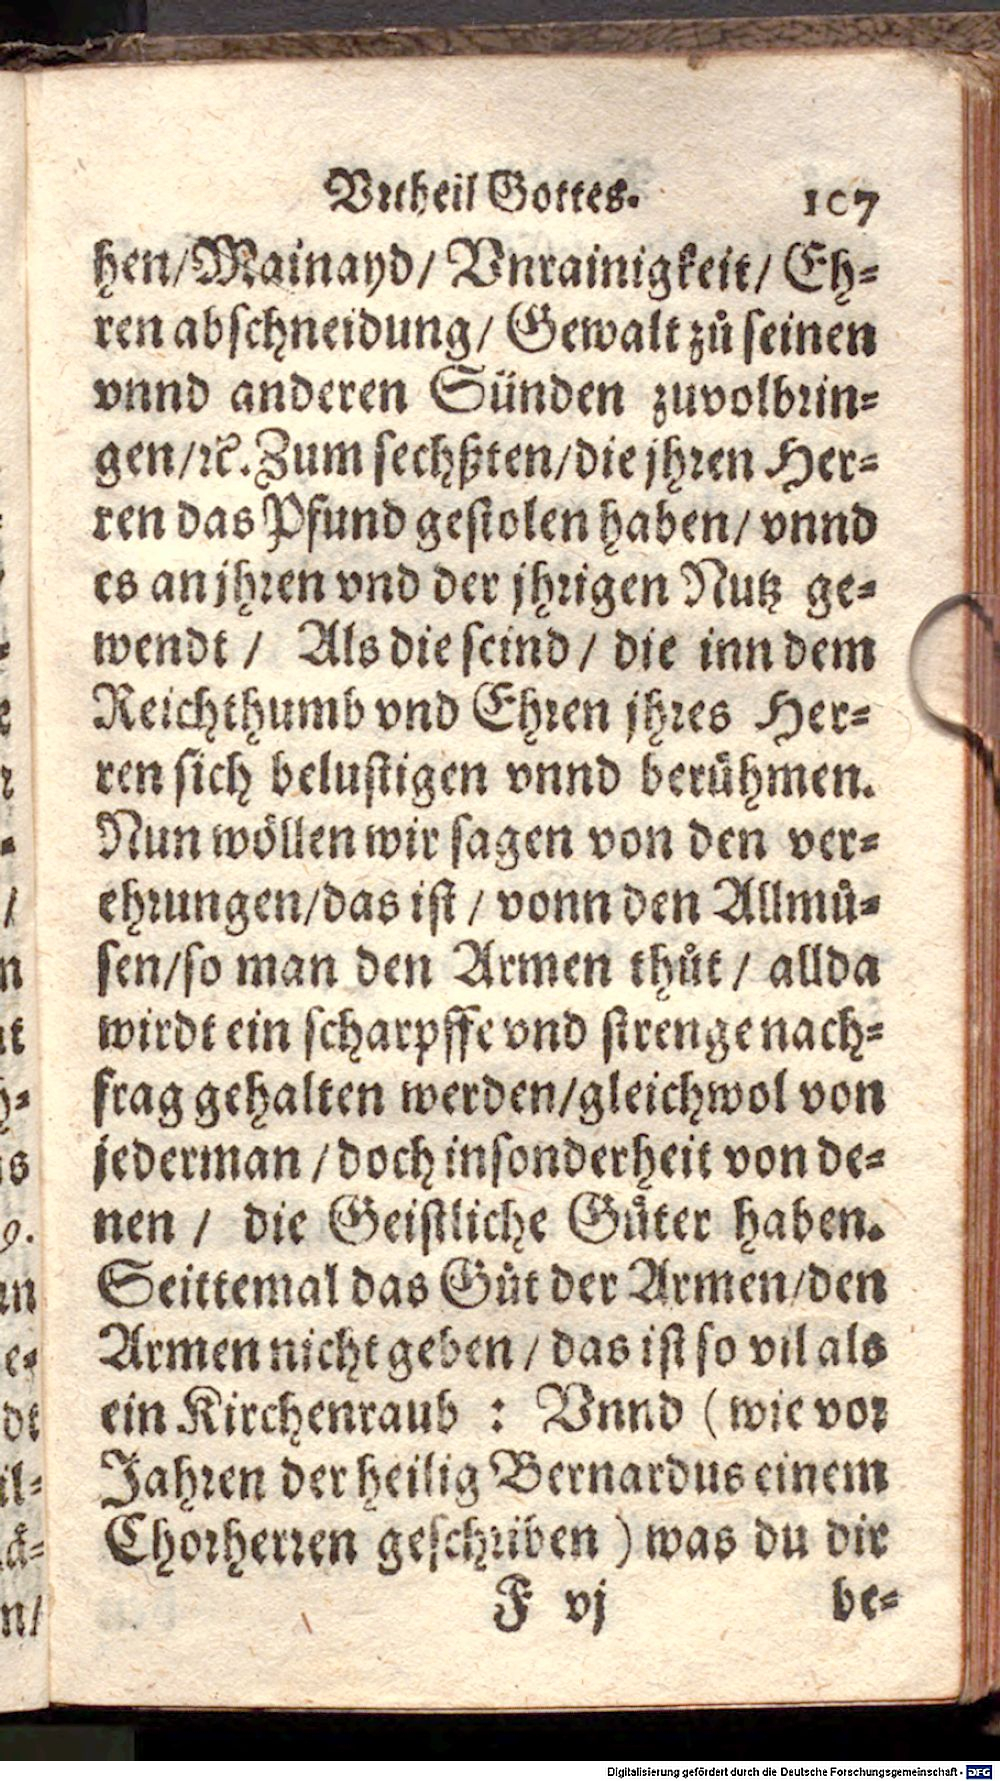 Vrtheil Gottes. 107
hen/Mainayd/ Vnrainigkeit/ Eh⸗
ren abschneidung/ Gewalt zů seinen
vnnd anderen Sünden zuvolbrin⸗
gen/ꝛc. Zum sechßten/die jhren Her⸗
ren das Pfund gestolen haben/ vnnd
es an jhren vnd der jhrigen Nutz ge⸗
wendt / Als die seind / die inn dem
Reichthumb vnd Ehren jhres Her⸗
ren sich belustigen vnnd berůhmen.
Nun wöllen wir sagen von den ver⸗
ehrungen/das ist / vonn den Allmů⸗
sen/so man den Armen thůt / allda
wirdt ein scharpffe vnd strenge nach⸗
frag gehalten werden/gleichwol von
jederman / doch insonderheit von de⸗
nen / die Geistliche Gůter haben.
Seittemal das Gůt der Armen/den
Armen nicht geben / das ist so vil als
ein Kirchenraub : Vnnd (wie vor
Jahren der heilig Bernardus einem
Chorherren geschriben) was du dir
F vj be⸗
Digitalisierung gefördert durch die Deutsche Forschungsgemeinschaft - DFG